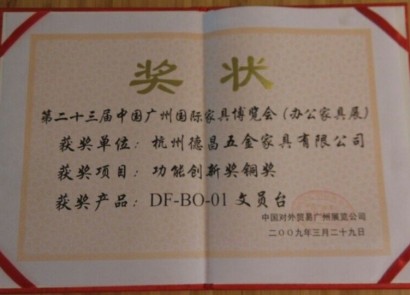 奖状
第二十三届中国广州国际家具博览会(办公家具展)
获奖单位：杭州德昌五金家具有限公司
获奖项目：功能创新奖铜奖
获奖产品：DF-BO-01文员台
中国对外贸易广州展览公司
二〇〇九年三月二十九日